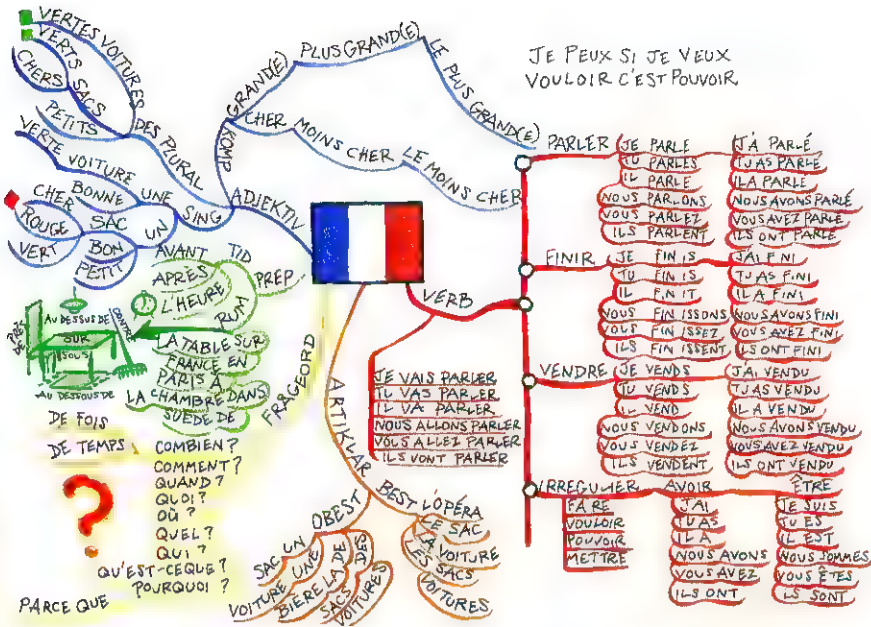 VERTES VOITURES
VERTS SACS
CHERS
PETITS
DES PLURAL
VERTE VOITURE
BONNE UNE
SING
CHER
ROUGE SAC UN
VERT
BON
PETIT
ADJEKTIV
KOMP
GRAND(E) PLUS GRAND(E) LE PLUS GRAND(E)
CHER MOINS CHER LE MOINS CHER
JE PEUX SI JE VEUX
VOULOIR C'EST POUVOIR
PREP.
TID
AVANT
APRÈS
L'HEURE
RUM
LA TABLE SUR
FRANCE EN
PARIS À
LA CHAMBRE DANS
SUÈDE DE
AU DESSUS DE
CONTRE
PRÈS DE
SUR
SOUS
AU DESSOUS DE
FRÅGEORD
DE FOIS
DE TEMPS
COMBIEN?
COMMENT?
QUAND?
QUOI?
OÙ?
QUEL?
QUI?
QU'EST-CEQUE?
POURQUOI?
PARCE QUE
?
ARTIKLAR
OBEST
SAC UN
VOITURE UNE
BIÈRE LA DE
SACS DES
VOITURES
BEST
L'OPÉRA
LE SAC
LA VOITURE
LES SACS
VOITURES
VERB
JE VAIS PARLER
TU VAS PARLER
IL VA PARLER
NOUS ALLONS PARLER
VOUS ALLEZ PARLER
ILS VONT PARLER
PARLER
JE PARLE
TU PARLES
IL PARLE
NOUS PARLONS
VOUS PARLEZ
ILS PARLENT
J'A PARLÉ
TU AS PARLÉ
IL A PARLÉ
NOUS AVONS PARLÉ
VOUS AVEZ PARLÉ
ILS ONT PARLÉ
FINIR
JE FINIS
TU FINIS
IL FINIT
NOUS FINISSONS
VOUS FINISSEZ
ILS FINISSENT
J'AI FINI
TU AS FINI
IL A FINI
NOUS AVONS FINI
VOUS AVEZ FINI
ILS ONT FINI
VENDRE
JE VENDS
TU VENDS
IL VEND
NOUS VENDONS
VOUS VENDEZ
ILS VENDENT
J'AI VENDU
TU AS VENDU
IL A VENDU
NOUS AVONS VENDU
VOUS AVEZ VENDU
ILS ONT VENDU
IRREGULIER
FAIRE
VOULOIR
POUVOIR
METTRE
AVOIR
J'AI
TU AS
IL A
NOUS AVONS
VOUS AVEZ
ILS ONT
ÊTRE
JE SUIS
TU ES
IL EST
NOUS SOMMES
VOUS ÊTES
ILS SONT